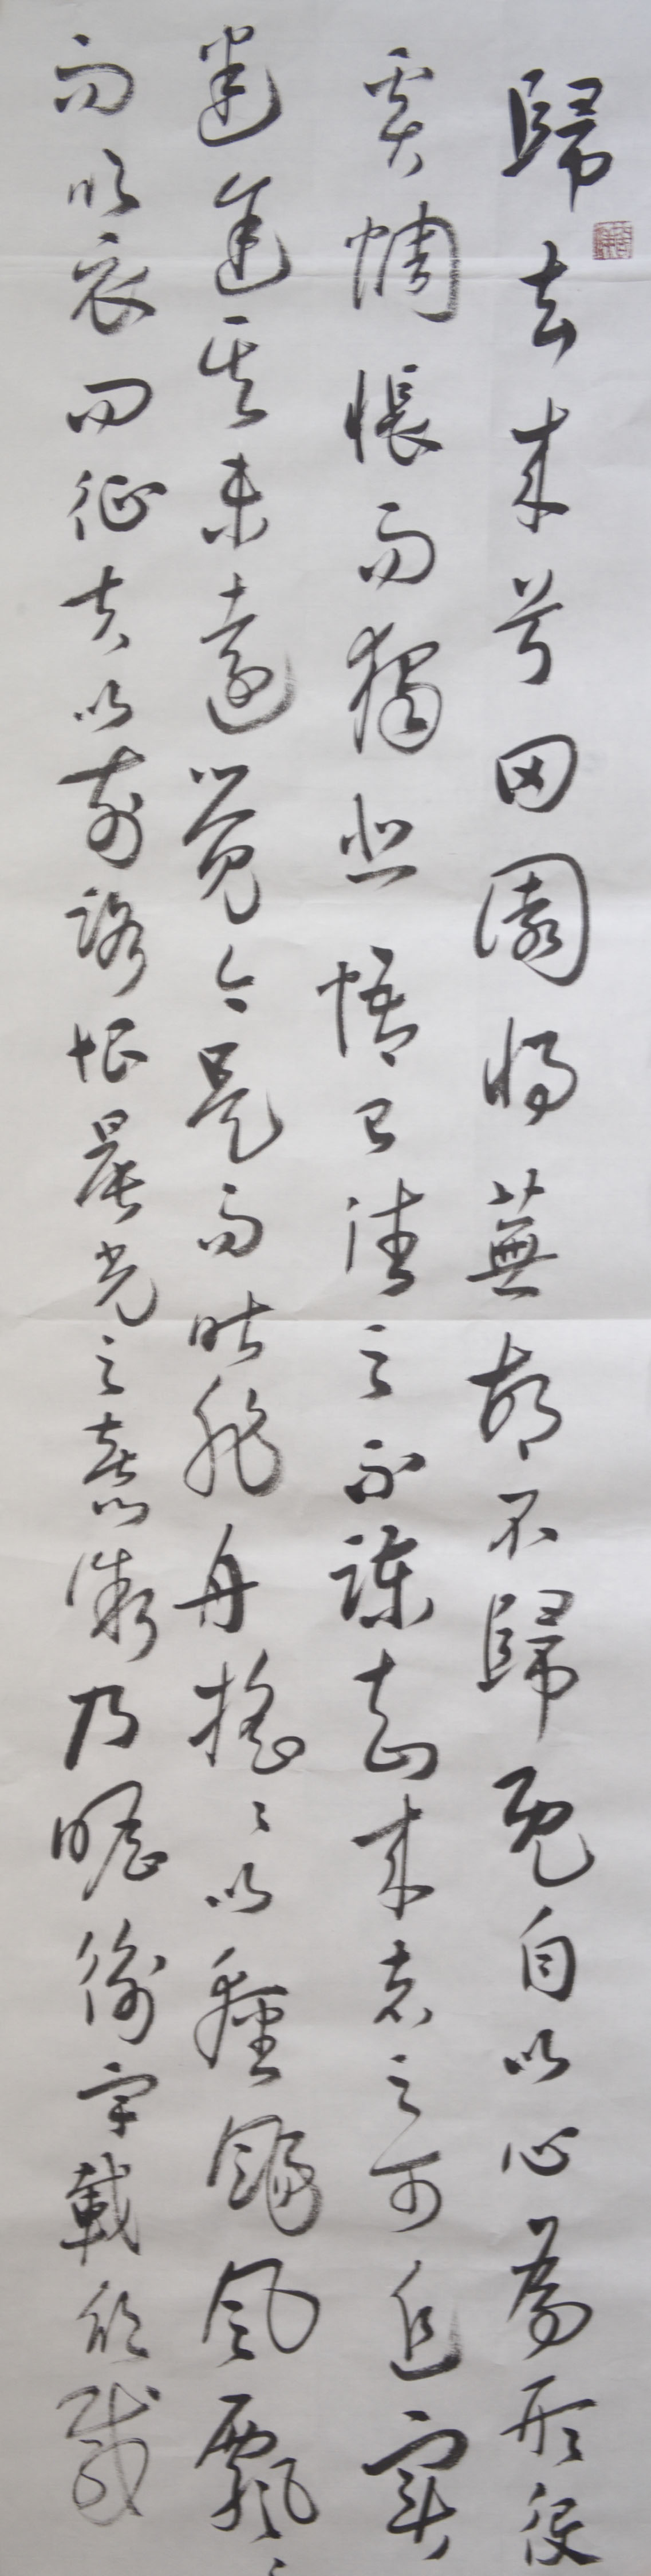 歸去来兮田園将蕪胡不歸既自以心為形役
奚惆悵而獨悲悟已往之不諫知来者之可追實
迷途其未遠覺今是而昨非舟搖〻以輕颺風飄〻
而吹衣問征夫以前路恨晨光之熹微乃瞻衡宇載欣載